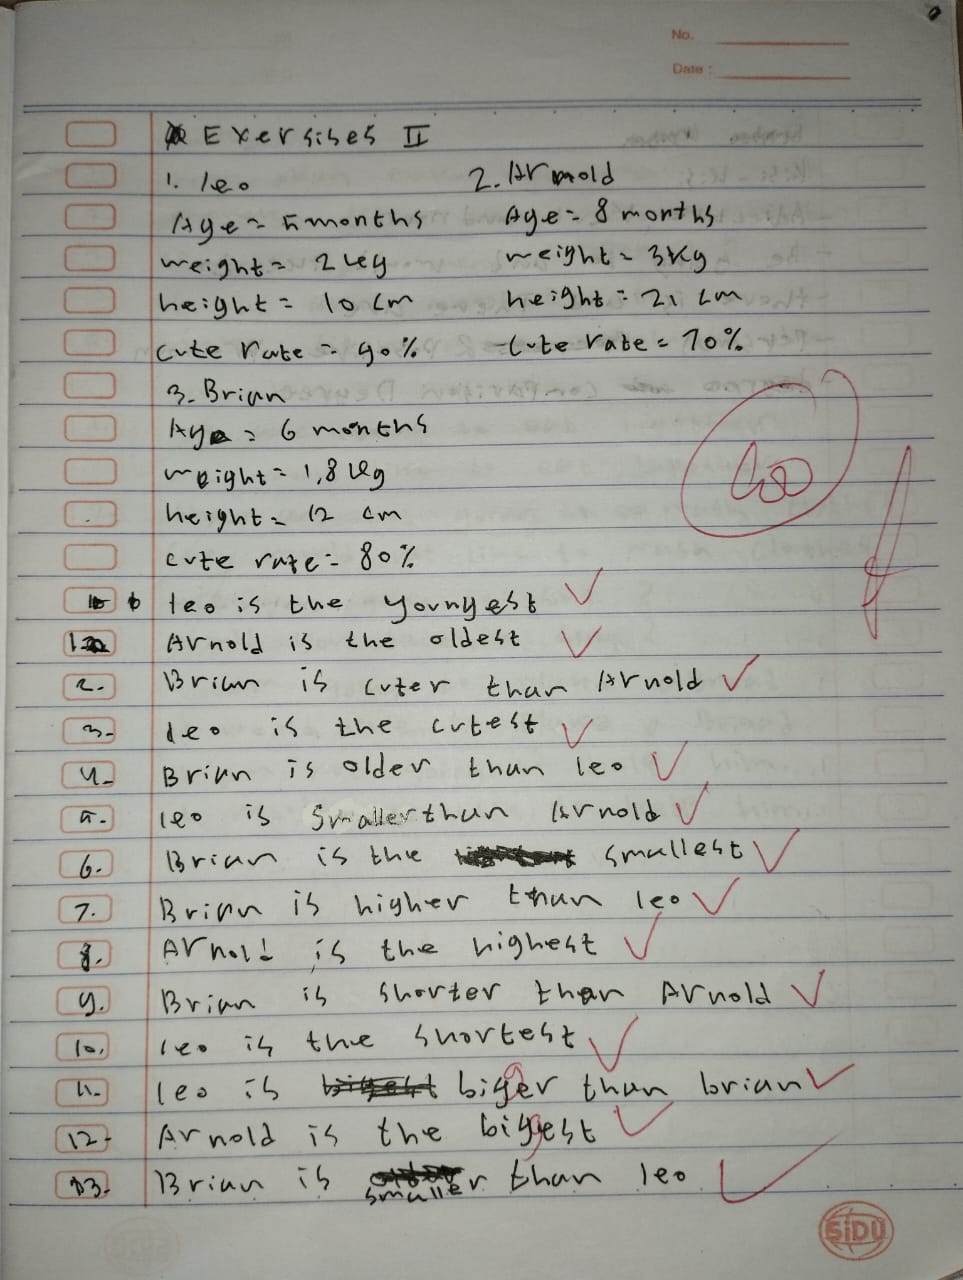 No.
Date :
Exersises II
1. leo
2. Arnold
Age = 5 months
Age = 8 months
weight = 2 kg
weight = 3 kg
height = 10 cm
height = 21 cm
cute rate = 90 %
- cute rate = 70 %
3. Brian
Age = 6 months
weight = 1,8 kg
height = 12 cm
cute rate = 80 %
100
leo is the youngest
1. Arnold is the oldest
2. Brian is cuter than Arnold
3. leo is the cutest
4. Brian is older than leo
5. leo is smaller than Arnold
6. Brian is the smallest
7. Brian is higher than leo
8. Arnold is the highest
9. Brian is shorter than Arnold
10. leo is the shortest
11. leo is biger than brian
12. Arnold is the bigest
13. Brian is smaller than leo
SiDU